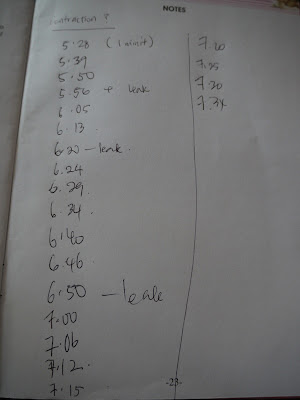 NOTES
contraction ?
5.28 (1 minit)
5.39
5.50
5.56 + leak
6.05
6.13.
6.20 - leak.
6.24
6.29.
6.34.
6.40
6.46
6.50 - leak
7.00
7.06
7.12.
7.15
7.20
7.25
7.30
7.34
-23-